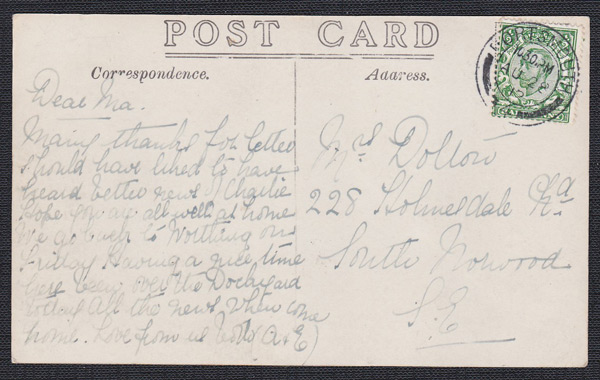 POST CARD
Correspondence.
Address.
Dear Ma.
Many thanks for letter
should have liked to have
heard better news of Charlie
hope you are all well at home
We go back to Worthing on
Friday Having a nice time
have been over the Dockyard
All the news when
home. Love from us both (A & E)
Mrs Dolton
228 Holmesdale Rd
South Norwood
S.E
4.30 PM
AU 28